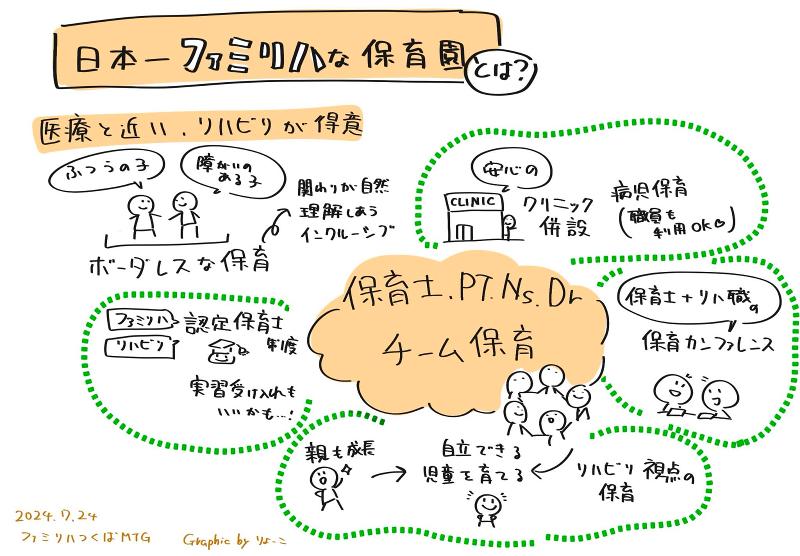 日本一ファミリハな保育園
とは?
医療と近い、リハビリが得意
ふつうの子
障がいの
ある子
ボーダレスな保育
関わりが自然
理解しあう
インクルーシブ
安心の
CLINIC
クリニック
併設
病児保育
(職員も
利用OK)
保育士.PT.Ns.Dr
チーム保育
ファミリハ
リハビリ
認定保育士
制度
実習受け入れも
いいかも…!
保育士+リハ職の
保育カンファレンス
親も成長
自立できる
児童を育てる
リハビリ視点の
保育
2024.7.24
ファミリハつくばMTG
Graphic by りょーこ